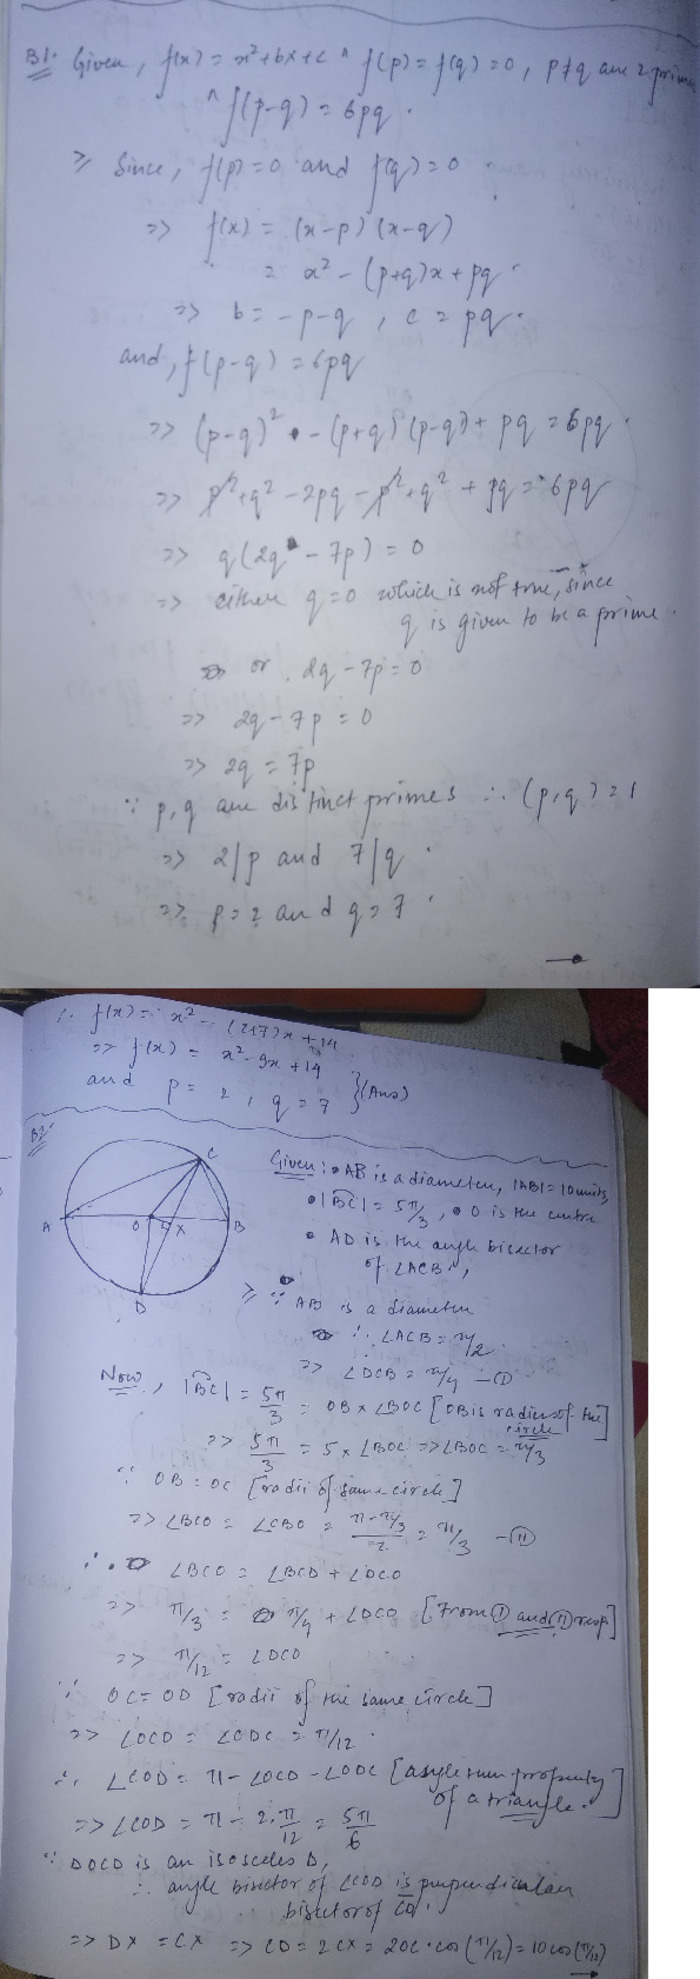 B1. Given, f(x) = x²+bx+c ^ f(p) = f(q) = 0, p≠q are 2 primes
^ f(p-q) = 6pq.
⇒ Since, f(p) = 0 and f(q) = 0
⇒ f(x) = (x-p)(x-q)
= x² - (p+q)x + pq.
⇒ b = -p-q, c = pq.
and, f(p-q) = 6pq
⇒ (p-q)² - (p+q)(p-q) + pq = 6pq.
⇒ p²+q² - 2pq - p²+q² + pq = 6pq
⇒ q(2q - 7p) = 0
⇒ either q=0 which is not true, since
q is given to be a prime.
or 2q - 7p = 0
⇒ 2q - 7p = 0
⇒ 2q = 7p
∵ p, q are distinct primes ∴ (p,q) = 1
⇒ 2|p and 7|q.
⇒ p=2 and q=7.
∴ f(x) = x² - (2+7)x + 14
⇒ f(x) = x² - 9x + 14
and p = 2, q = 7 } (Ans)
B2.
C
A O X B
D
Given: • AB is a diameter, |AB| = 10 units,
• |BC| = 5π/3, • O is the centre
• AD is the angle bisector
of ∠ACB.,
⇒ ∵ AB is a diameter
∴ ∠ACB = π/2.
⇒ ∠DCB = π/4 - (I)
Now, |BC| = 5π/3 = OB × ∠BOC [OB is radius of the
circle]
⇒ 5π/3 = 5 × ∠BOC ⇒ ∠BOC = π/3
∵ OB = OC [radii of same circle]
⇒ ∠BCO = ∠CBO = (π - π/3)/2 = π/3 - (II)
∴ ∠BCO = ∠BCD + ∠DCO
⇒ π/3 = π/4 + ∠DCO [From (I) and (II) resp.]
⇒ π/12 = ∠DCO
∵ OC = OD [radii of the same circle]
⇒ ∠OCD = ∠ODC = π/12.
∴ ∠COD = π - ∠OCD - ∠ODC [angle sum property
of a triangle.]
⇒ ∠COD = π - 2.π/12 = 5π/6
∵ ΔOCD is an isosceles Δ,
∴ angle bisector of ∠COD is perpendicular
bisector of CD.
⇒ DX = CX ⇒ CD = 2CX = 2OC.cos(π/12) = 10cos(π/12)